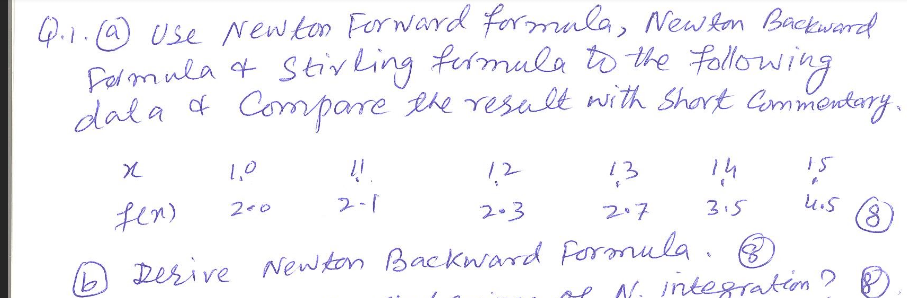 Q.1. (a) Use Newton Forward formula, Newton Backward
Formula & Stirling formula to the following
data & Compare the result with short Commentary.
x 1.0 1.1 1.2 1.3 1.4 1.5
f(x) 2.0 2.1 2.3 2.7 3.5 4.5 (8)
(b) Derive Newton Backward Formula. (8)
of N. integration? (8)